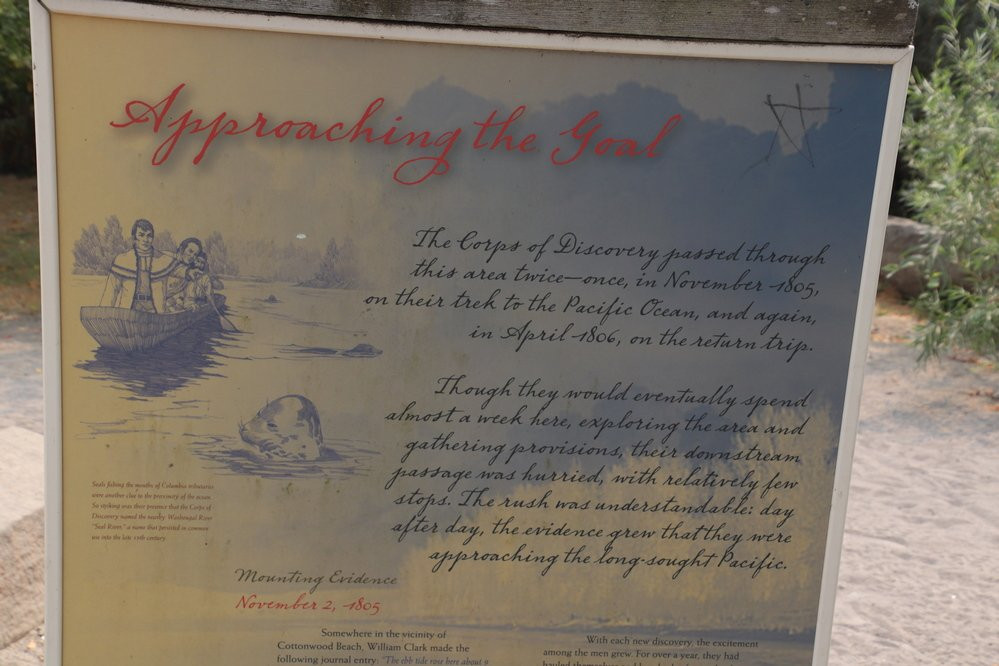 Approaching the Goal
The Corps of Discovery passed through
this area twice—once, in November 1805,
on their trek to the Pacific Ocean, and again,
in April 1806, on the return trip.
Though they would eventually spend
almost a week here, exploring the area and
gathering provisions, their downstream
passage was hurried, with relatively few
stops. The rush was understandable: day
after day, the evidence grew that they were
approaching the long-sought Pacific.
Seals fishing the mouths of Columbia tributaries
were another clue to the proximity of the ocean.
So striking was their presence that the Corps of
Discovery named the nearby Washougal River
"Seal River," a name that persisted in common
use into the late 19th century.
Mounting Evidence
November 2, 1805
Somewhere in the vicinity of
Cottonwood Beach, William Clark made the
following journal entry: "The ebb tide rose here about 9
With each new discovery, the excitement
among the men grew. For over a year, they had
hauled themselves